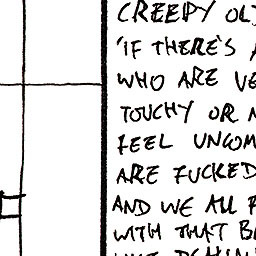 CREEPY OL
'IF THERE'S
WHO ARE VE
TOUCHY OR
FEEL UNCOM
ARE FUCKED
AND WE ALL
WITH THAT B